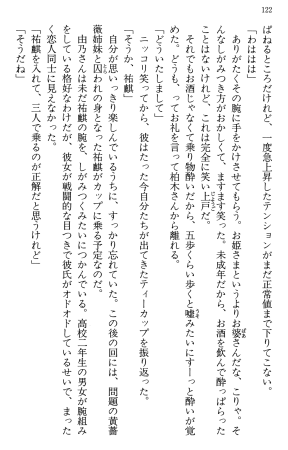 122
ばねるところだけれど、一度急上昇したテンションがまだ正常値まで下りてこない。
「わはははは」
ありがたくその腕に手をかけさせてもらう。お姫さまというよりお婆さんだな、こりゃ。そ
んなしがみつき方がおかしくて、ますます笑った。未成年だから、お酒を飲んで酔っぱらった
ことはないけれど、これは完全に笑い上戸だ。
それでもお酒じゃなくて乗り物酔いだから、五歩くらい歩くと嘘みたいにすーっと酔いが覚
めた。どうも、ってお礼を言って柏木さんから離れる。
「どういたしまして」
ニッコリ笑ってから、彼はたった今自分たちが出てきたティーカップを振り返った。
「そうか、祐麒」
自分が思いっきり楽しんでいるうちに、すっかり忘れていた。この後の回には、問題の黄薔
薇姉妹と囚われの身となった祐麒がカップに乗る予定なのだ。
由乃さんは未だ祐麒の腕を、しがみつくみたいにつかんでいる。高校二年生の男女が腕組み
をしている格好なわけだが、彼女が戦闘的な目つきで彼氏がオドオドしているせいで、まった
く恋人同士に見えなかった。
「祐麒を入れて、三人で乗るのが正解だと思うけれど」
「そうだね」